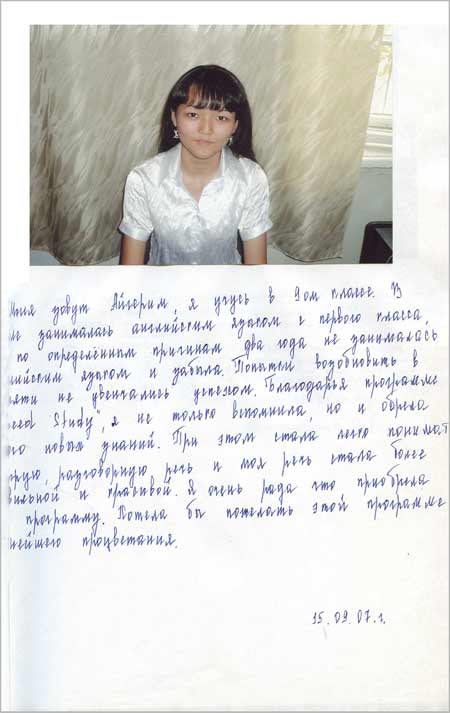 Меня зовут Айгерим, я учусь в 9ом классе. В
не занималась английским языком с первого класса,
по определённым причинам два года не занималась
лийским языком и забыла. Попытки возобновить в
яти не увенчались успехом. Благодарья программе
eed Study", я не только вспомнила, но и обрела
го новых знаний. При этом стала легко понимат
рную, разговорную речь и моя речь стала более
вильной и красивой. Я очень рада что приобрела
программу. Хотела бы пожелать этой программе
нейшего процветания.
15.09.07 г.